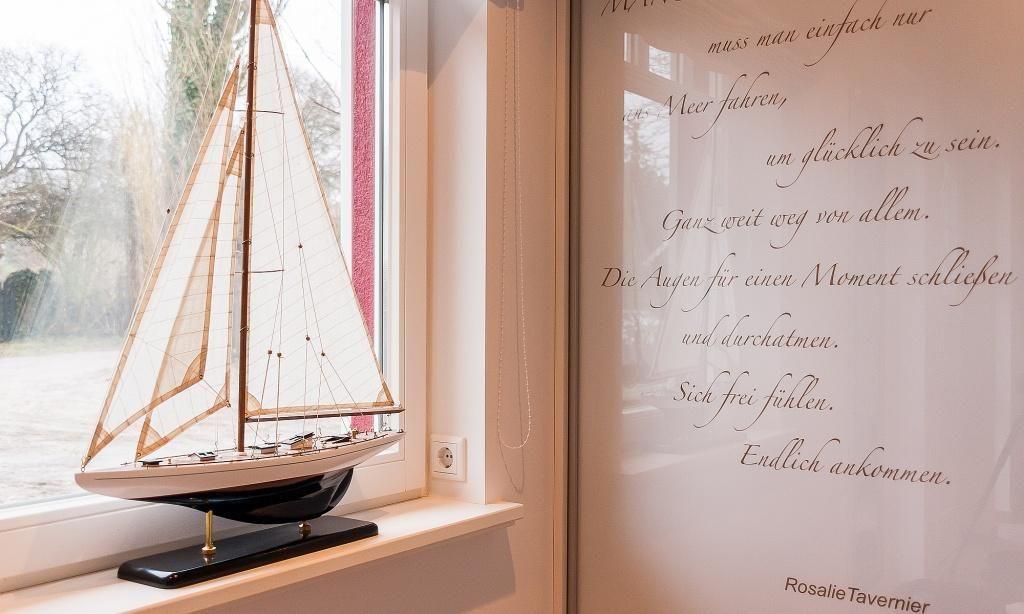 muss man einfach nur
ans Meer fahren,
um glücklich zu sein.
Ganz weit weg von allem.
Die Augen für einen Moment schließen
und durchatmen.
Sich frei fühlen.
Endlich ankommen.
RosalieTavernier